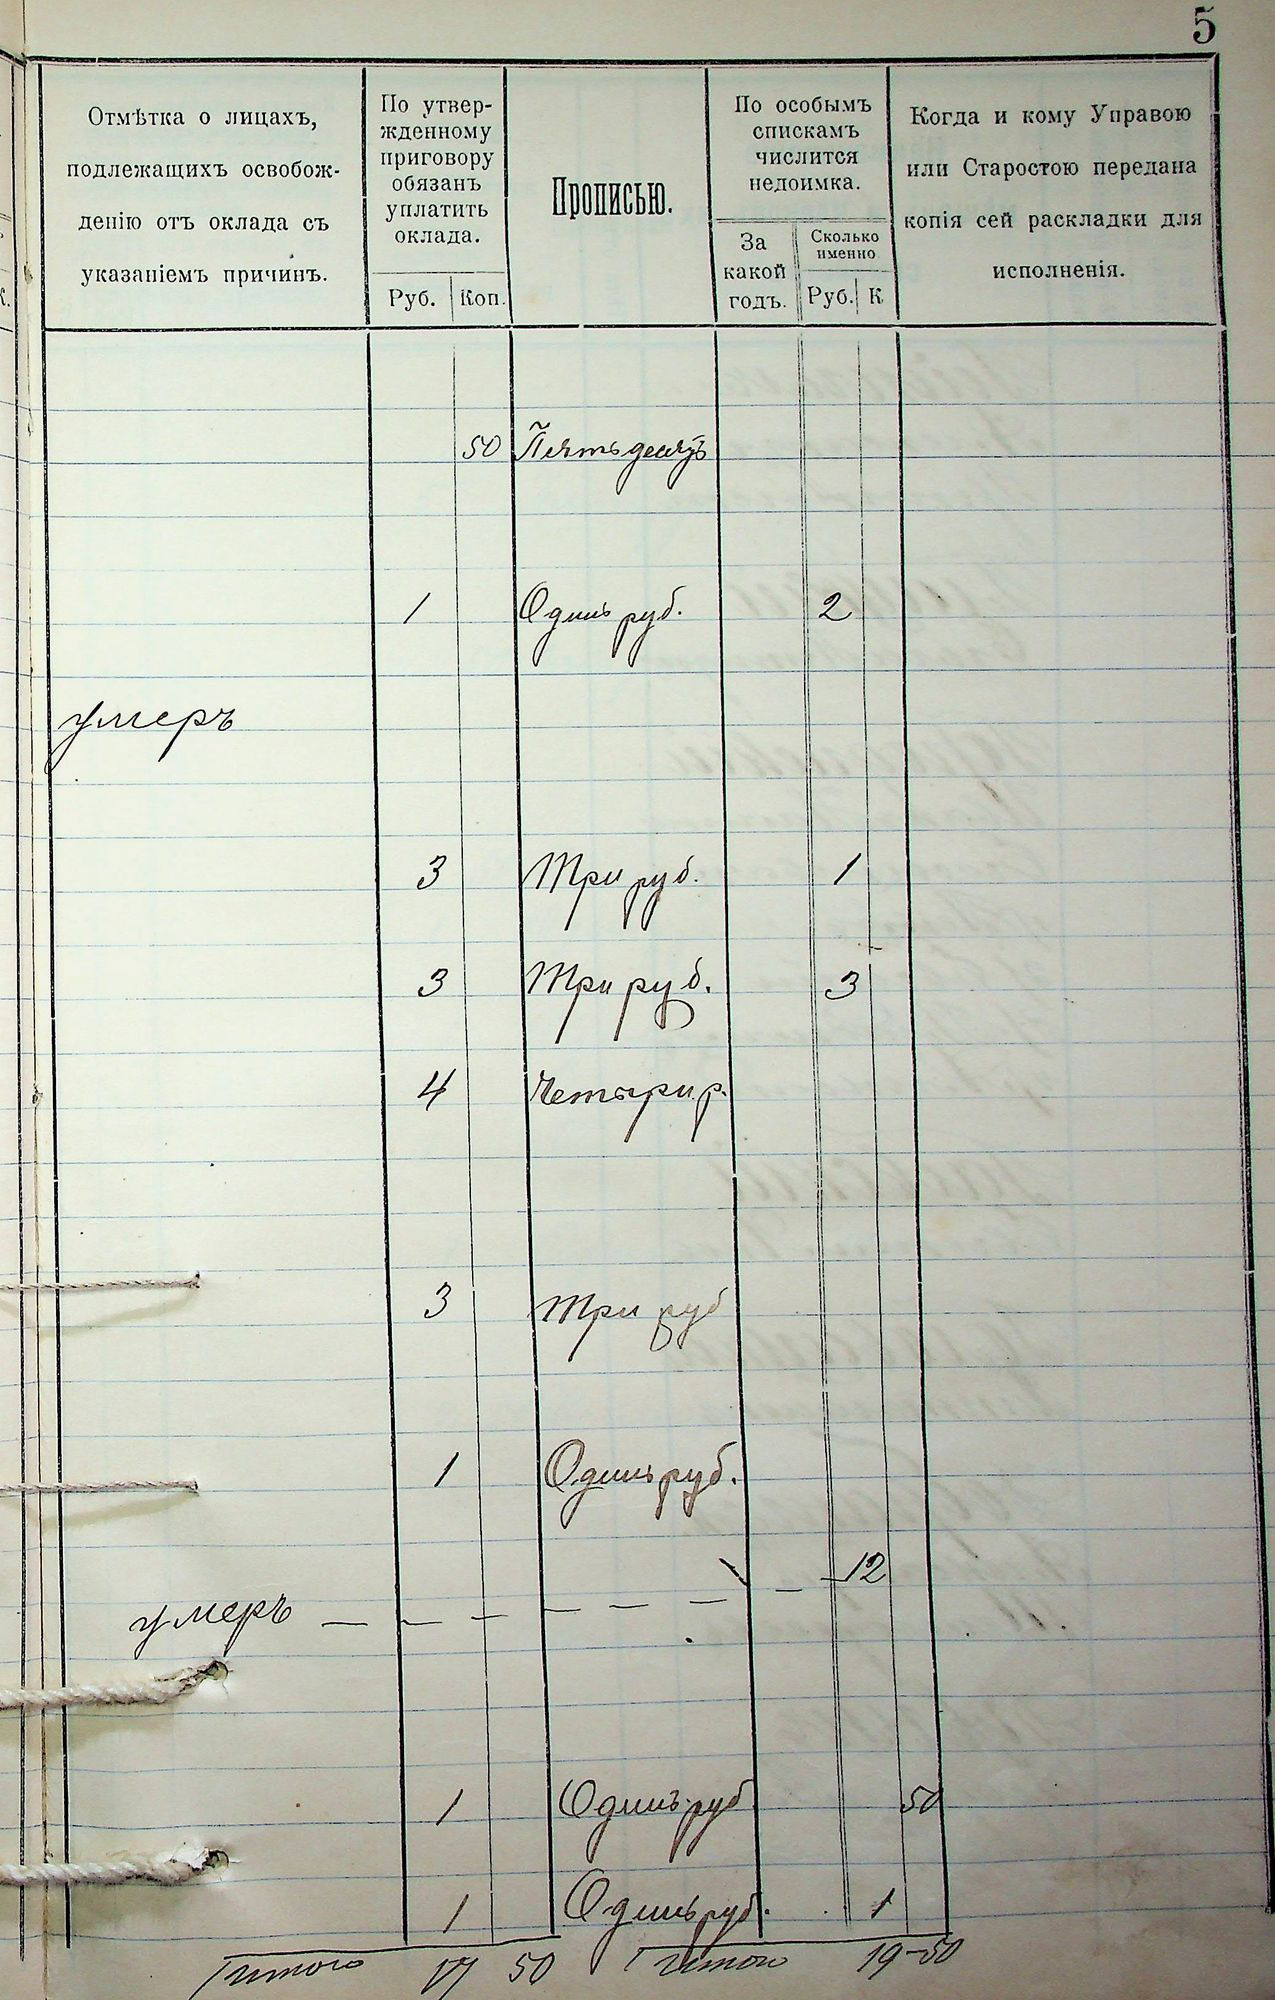 5
Отмѣтка о лицахъ,
подлежащихъ освобож-
денію отъ оклада съ
указаніемъ причинъ.
По утвер-
жденному
приговору
обязанъ
уплатить
оклада.
Руб. Коп.
Прописью.
По особымъ
спискамъ
числится
недоимка.
За
какой
годъ.
Сколько
именно
Руб. К
Когда и кому Управою
или Старостою передана
копія сей раскладки для
исполненія.
50 Пятьдесятъ
1 Одинъ руб. 2
умеръ
3 Три руб. 1
3 Три руб. 3
4 Четыри р.
3 Три руб
1 Одинъ руб.
12
умеръ
1 Одинъ руб 50
1 Одинъ руб. 1
Итого 17 50 Итого 19-50